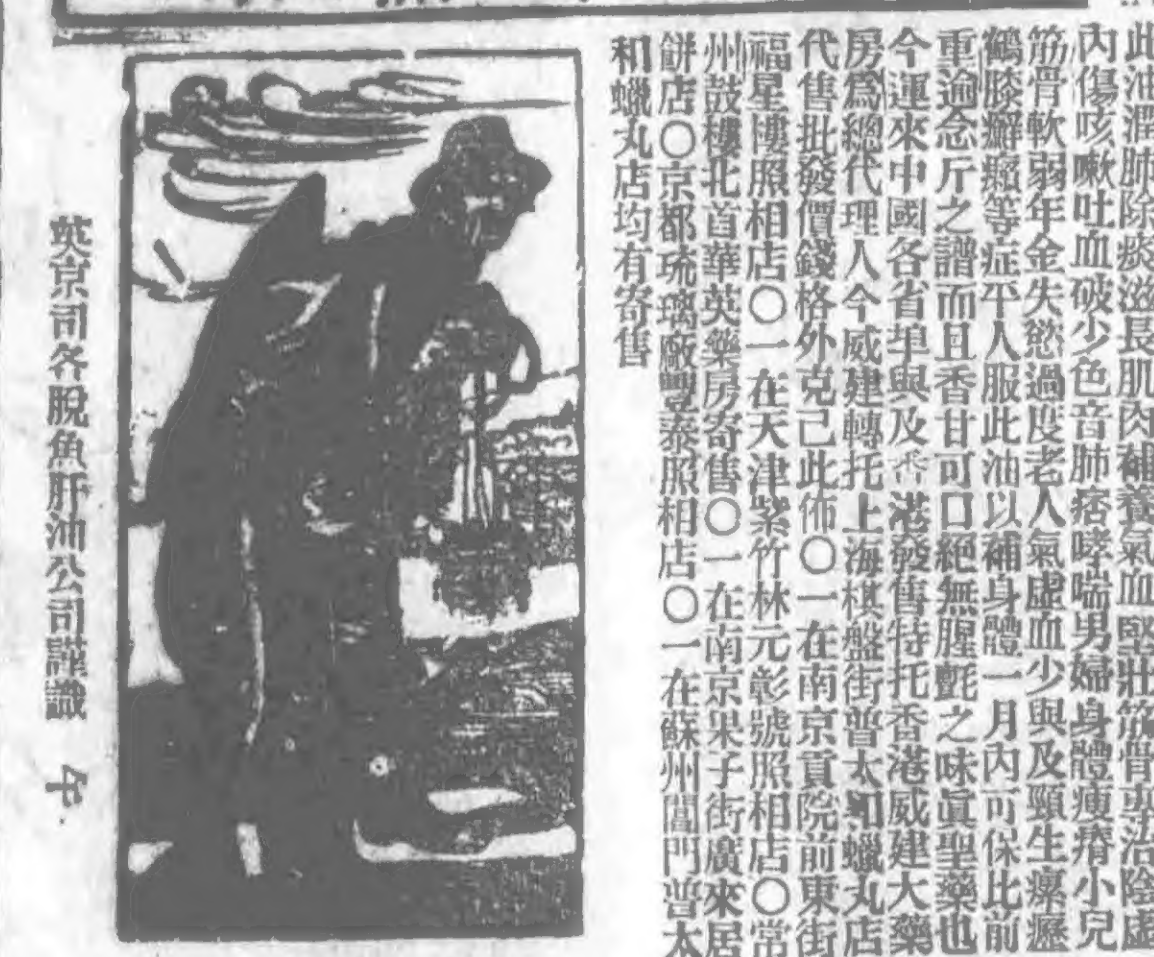 此油潤肺除痰滋長肌肉補養氣血堅壯筋骨專治陰虛
內傷咳嗽吐血破少色音肺痞哮喘男婦身體瘦瘠小兒
筋骨軟弱年金失慾過度老人氣虛血少與及頸生瘰癧
鶴膝癬癩等症平人服此油以補身體一月內可保比前
重逾念斤之譜而且香甘可口絕無腥氈之味眞聖藥也
今運來中國各省埠與及香港發售特托香港威建大藥
房爲總代理人今威建轉托上海棋盤街普太和蠟丸店
代售批發價錢格外克己此佈〇一在南京貢院前東街
福星樓照相店〇一在天津紫竹林元彰號照相店〇常
州鼓樓北首華英藥房寄售〇一在南京果子街廣來居
餅店〇京都琉璃廠豐泰照相店〇一在蘇州閶門普太
和蠟丸店均有寄售
英京司各脫魚肝油公司謹識 午